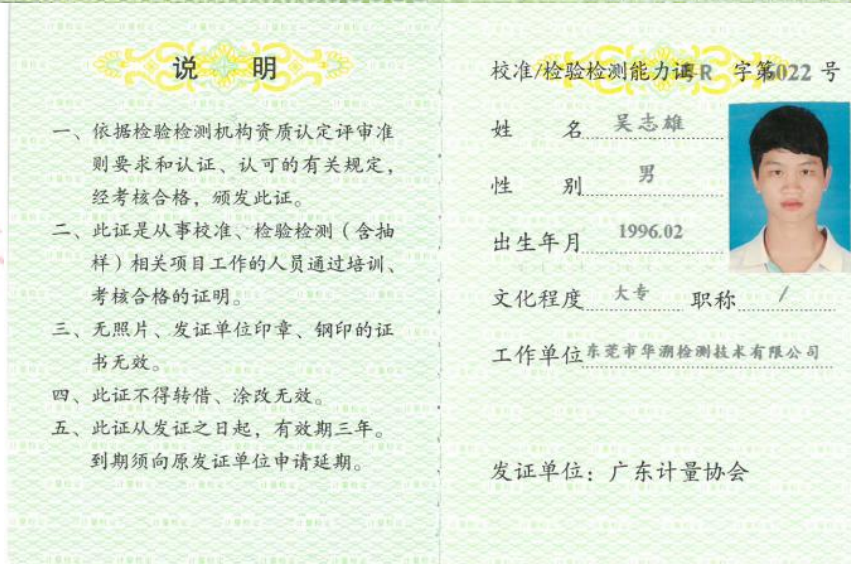 说 明
一、依据检验检测机构资质认定评审准
则要求和认证、认可的有关规定,
经考核合格,颁发此证。
二、此证是从事校准、检验检测(含抽
样)相关项目工作的人员通过培训、
考核合格的证明。
三、无照片、发证单位印章、钢印的证
书无效。
四、此证不得转借、涂改无效。
五、此证从发证之日起,有效期三年。
到期须向原发证单位申请延期。
校准/检验检测能力证粤R 字第5022 号
姓 名 吴志雄
性 别 男
出生年月 1996.02
文化程度 大专 职称 /
工作单位 东莞市华溯检测技术有限公司
发证单位:广东计量协会